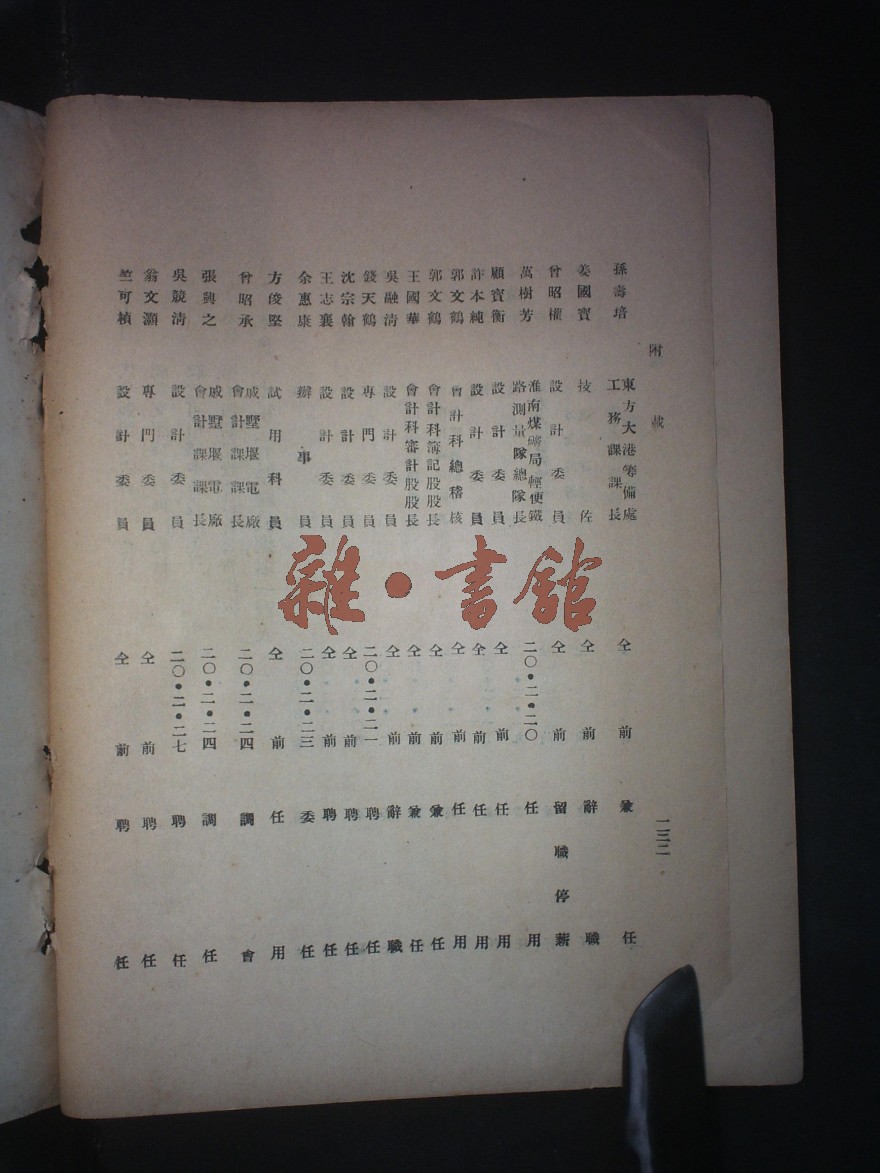 附載
一三二
孫壽培 東方大港籌備處工務課課長 仝前 兼任
姜國寶 技佐 仝前 辭職
曾昭權 設計委員 仝前 留職停薪
萬樹芳 淮南煤礦局輕便鐵路測量隊總隊長 二〇•二•二〇 任用
顧寳衡 設計委員 仝前 任用
許本純 設計委員 仝前 任用
郭文鶴 會計科總稽核 仝前 任用
郭文鶴 會計科簿記股股長 仝前 兼任
王國華 會計科審計股股長 仝前 兼任
吳融淸 設計委員 仝前 辭職
錢天鶴 專門委員 二〇•二•二一 聘任
沈宗翰 設計委員 仝前 聘任
王志襄 設計委員 仝前 聘任
余惠康 辦事員 二〇•二•二三 委任
方俊堅 試用科員 仝前 任用
曾昭承 戚墅堰電廠會計課課長 二〇•二•二四 調會
張興之 戚墅堰電廠會計課課長 二〇•二•二四 調任
吳競淸 設計委員 二〇•二•二七 聘任
翁文灝 專門委員 仝前 聘任
竺可楨 設計委員 仝前 聘任
雜•書館